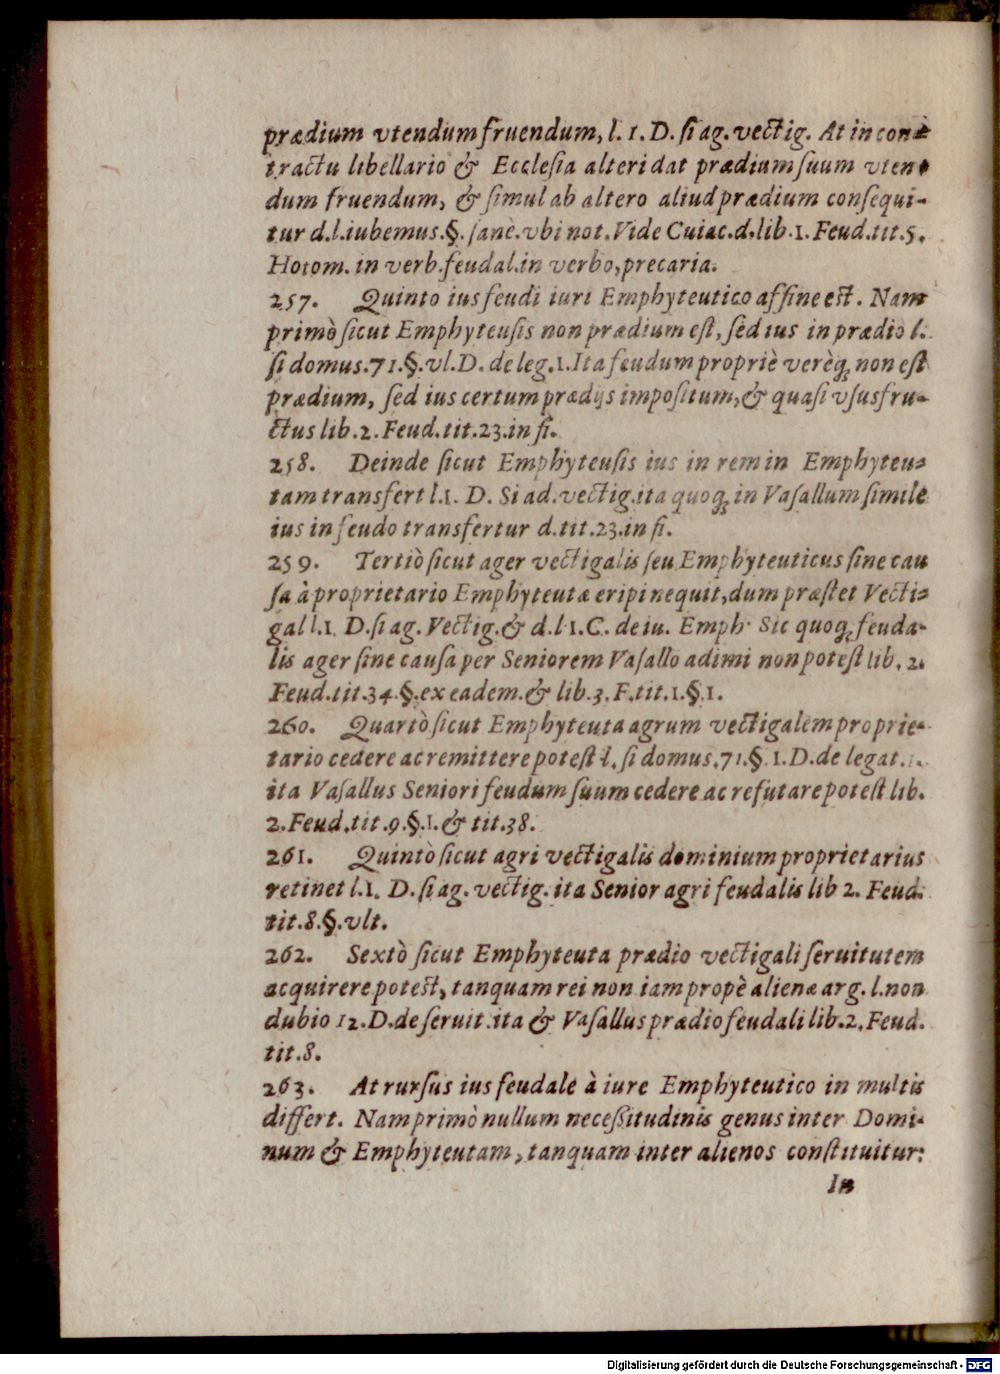 prædium vtendum fruendum, l. 1. D. ſi ag. vectig. At in con-
tractu libellario & Eccleſia alteri dat prædium ſuum vten-
dum fruendum, & ſimul ab altero aliud prædium conſequi-
tur d.l.iubemus.§. ſanè.vbi not. Vide Cuiac.d.lib.1. Feud.tit.5.
Hotom. in verb.feudal.in verbo, precaria.
257. Quinto ius feudi iuri Emphyteutico affine eſt. Nam
primò ſicut Emphyteuſis non prædium eſt, ſed ius in prædio l.
ſi domus.71.§.vl.D. de leg.1.Ita feudum propriè verèq́; non eſt
prædium, ſed ius certum prædijs impoſitum, & quaſi vſusfru-
ctus lib.2. Feud.tit.23.in fi.
258. Deinde ſicut Emphyteuſis ius in rem in Emphyteu-
tam transfert l.1. D. Si ad.vectig.ita quoq́; in Vaſallum ſimile
ius in feudo transfertur d.tit.23.in fi.
259. Tertiò ſicut ager vectigalis ſeu Emphyteuticus ſine cau
ſa à proprietario Emphyteutæ eripi nequit, dum præſtet Vecti-
gal l.1. D.ſi ag. Vectig.& d.l 1.C. de iu. Emph. Sic quoq́; feuda-
lis ager ſine cauſa per Seniorem Vaſallo adimi non poteſt lib. 2.
Feud.tit.34.§.ex eadem.& lib.3.F.tit.1.§1.
260. Quartò ſicut Emphyteuta agrum vectigalem proprie-
tario cedere ac remittere poteſt l. ſi domus.71.§.1.D.de legat.1.
ita Vaſallus Seniori feudum ſuum cedere ac refutare poteſt lib.
2.Feud.tit.9.§.1.& tit.38.
261. Quintò ſicut agri vectigalis dominium proprietarius
retinet l.1. D.ſi ag. vectig. ita Senior agri feudalis lib 2. Feud.
tit.8.§.vlt.
262. Sextò ſicut Emphyteuta prædio vectigali ſeruitutem
acquirere poteſt, tanquam rei non iam propè alienæ arg. l.non
dubio 12.D.de ſeruit.ita & Vaſallus prædio feudali lib.2. Feud.
tit.8.
263. At rurſus ius feudale à iure Emphyteutico in multis
differt. Nam primò nullum neceſſitudinis genus inter Domi-
num & Emphyteutam, tanquam inter alienos conſtituitur:
In
Digitalisierung gefördert durch die Deutsche Forschungsgemeinschaft - DFG